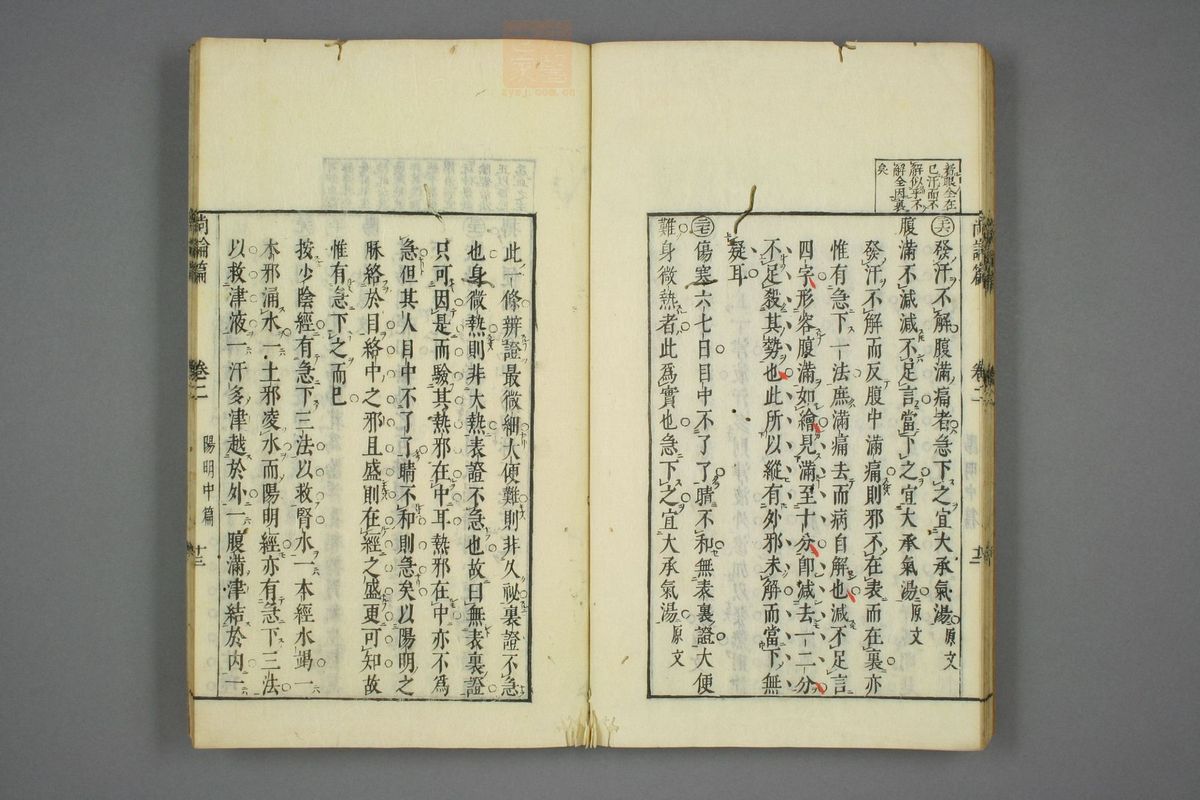 着眼全在
已汗而不
解似乎不
解全因裏
矣
尚論篇 卷二
㊅發汗不解腹滿痛者急下之宜大承氣湯原文
腹滿不減減不足言當下之宜大承氣湯原文
發汗不解而反腹中滿痛則邪不在表而在裏亦
惟有急下一法庶滿痛去而病自解也減不足言
四字形容腹滿如繪見滿至十分卽減去一二分
不足殺其勢也此所以縱有外邪未解而當下無
疑耳
傷寒六七日目中不了了睛不和無表裏證大便
難身微熱者此爲實也急下之宜大承氣湯原文
此一條辨證最微細大便難則非久祕裏證不急
也身微熱則非大熱表證不急也故曰無表裏證
只可因是而驗其熱邪在中耳熱邪在中亦不爲
急但其人目中不了了睛不和則急矣以陽明之
脉絡於目絡中之邪且盛則在經之盛更可知故
惟有急下之而已
按少陰經有急下三法以救腎水一本經水竭一
木邪涌水一土邪凌水而陽明經亦有急下三法
以救津液一汗多津越於外一腹滿津結於內一
尚論篇 卷二 陽明中篇 十三